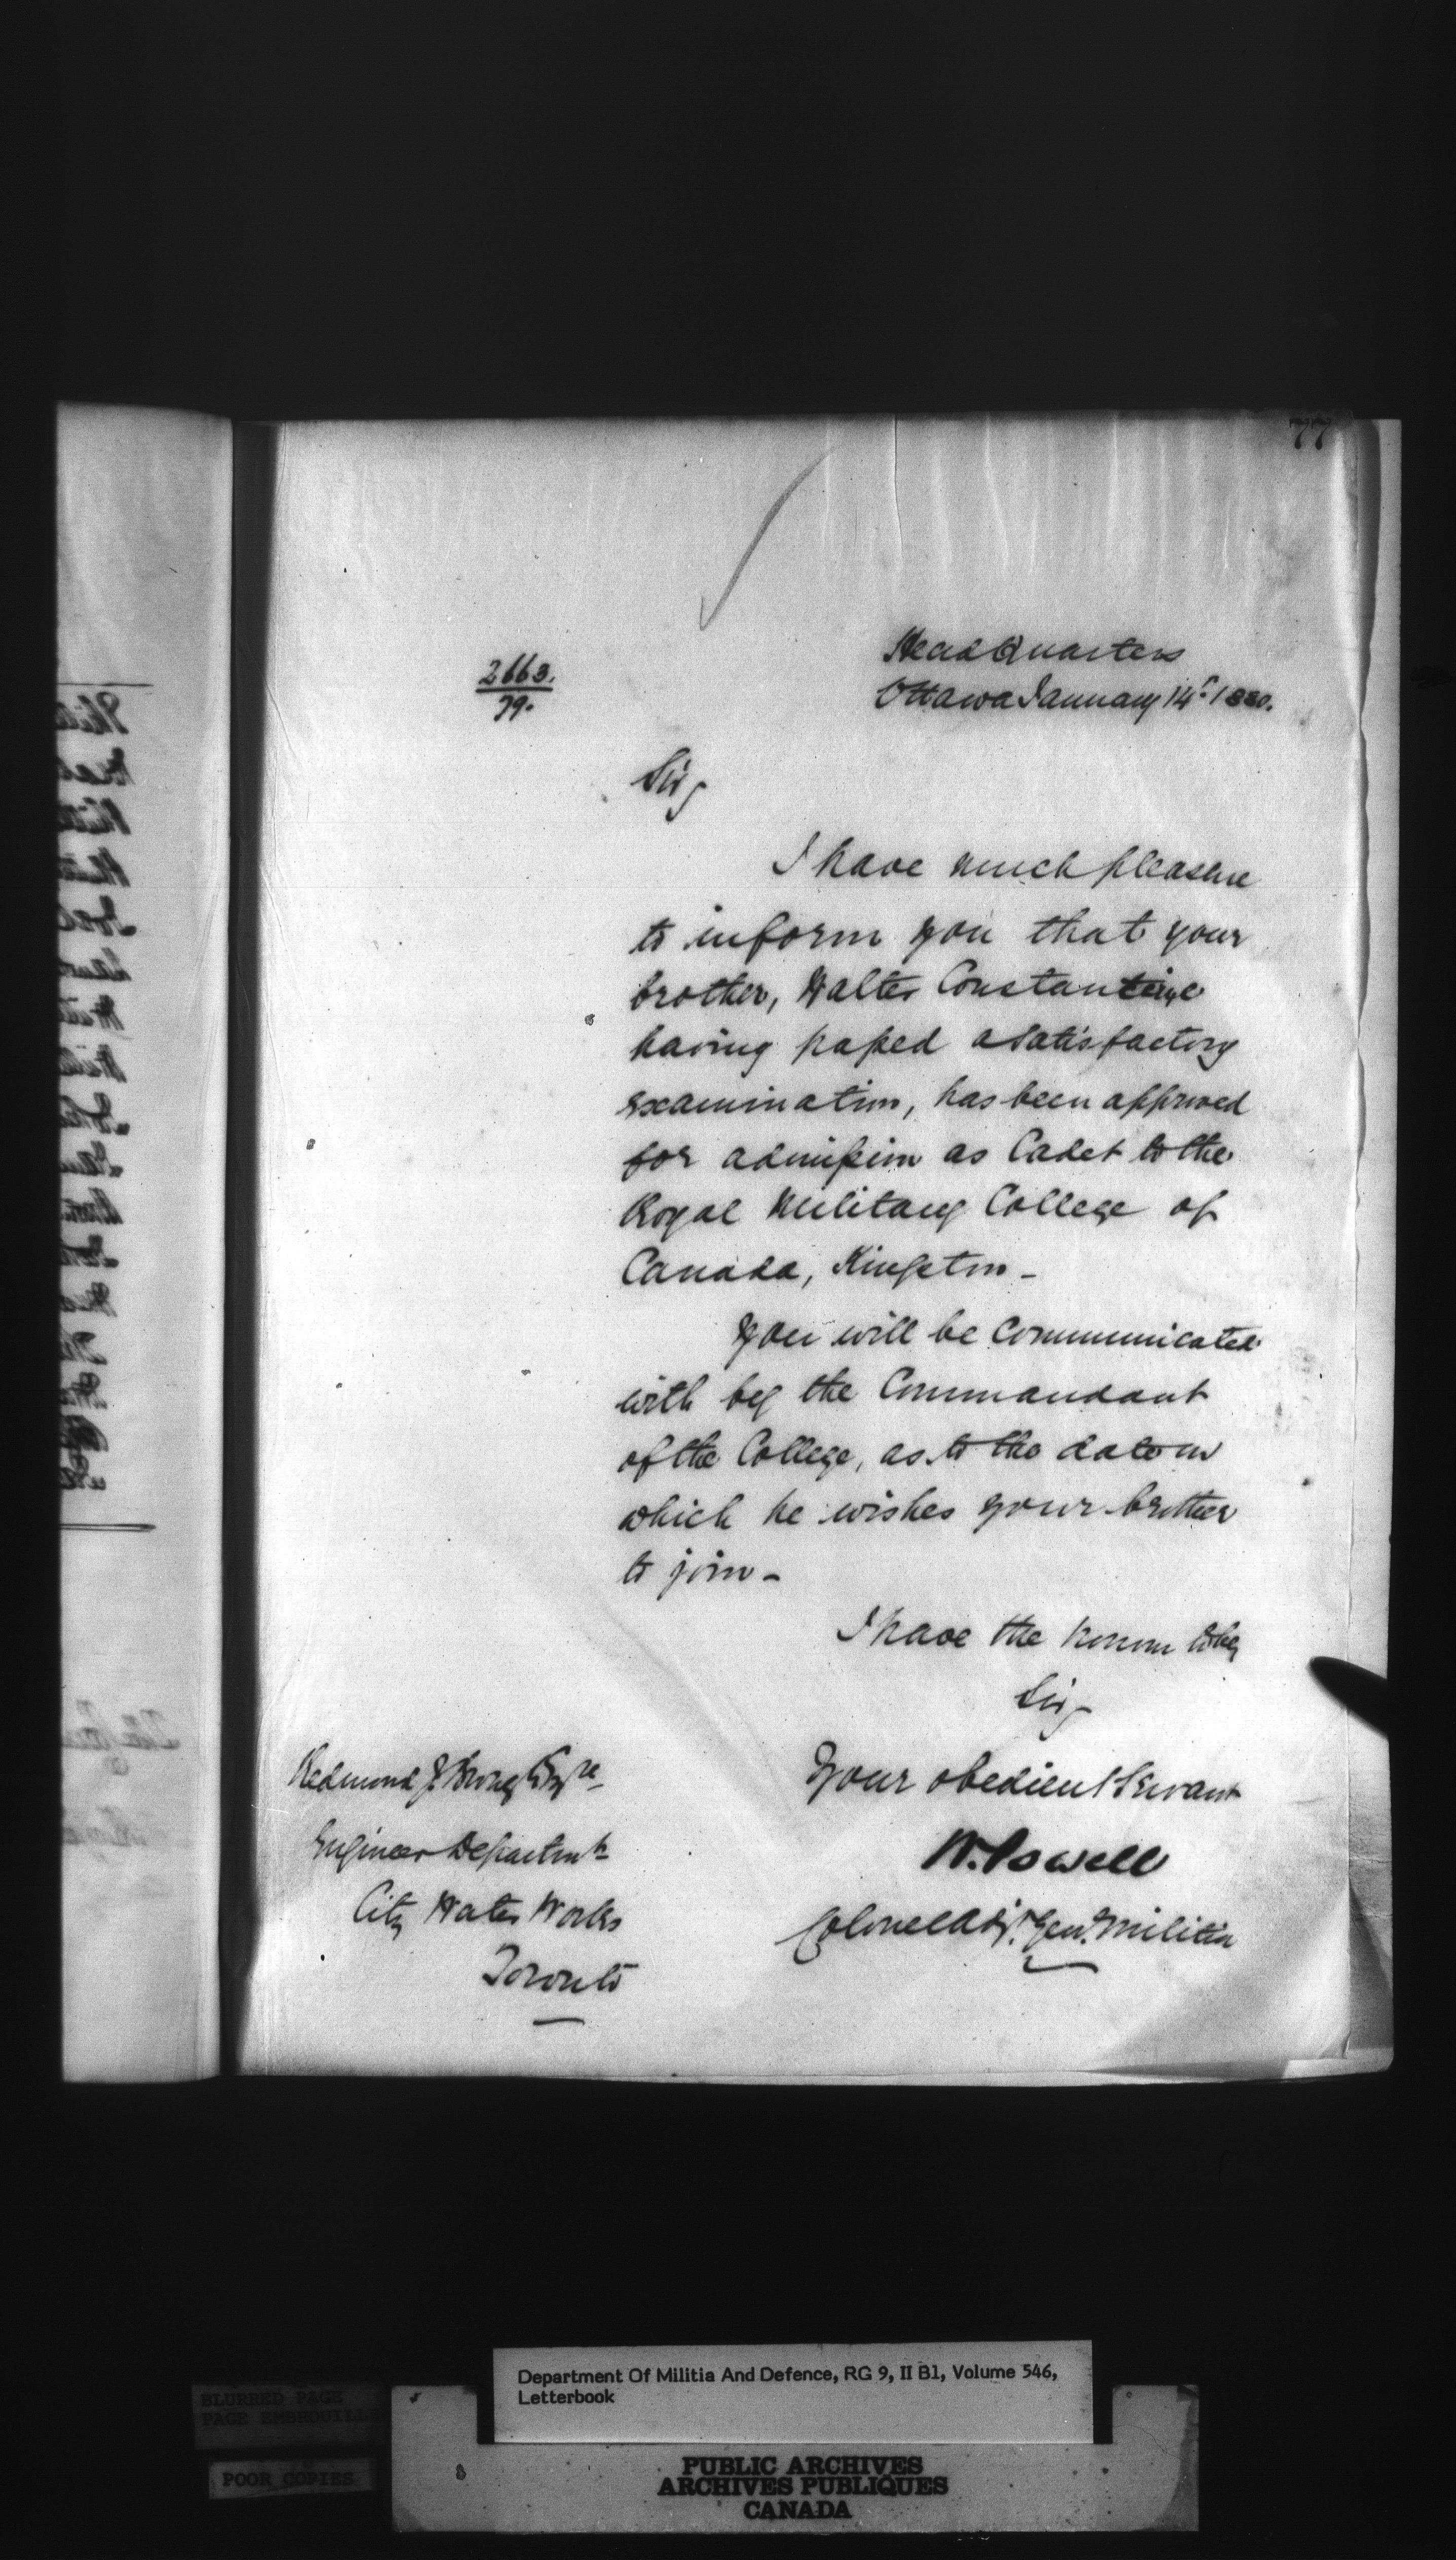 77
HeadQuarters
2663.
79.
Ottawa January 14th 1880.
Sir,
I have much pleasure
to inform you that your
brother, Walter Constantine
having passed a satisfactory
examination, has been approved
for admission as Cadet to the
Royal Military College of
Canada, Kingston -
You will be communicated
with by the Commandant
of the College, as to the date on
which he wishes your brother
to join -
I have the honor to be,
Sir,
Your obedient Servant
W. Powell
Colonel Adj. Genl. Militia
Redmond J. Esqre
Engineer Departmt
City Water Works
Toronto
Department Of Militia And Defence, RG 9, II B1, Volume 546,
Letterbook
BLURRED PAGE
PAGE EMBROUILLE
POOR COPIES
PUBLIC ARCHIVES
ARCHIVES PUBLIQUES
CANADA